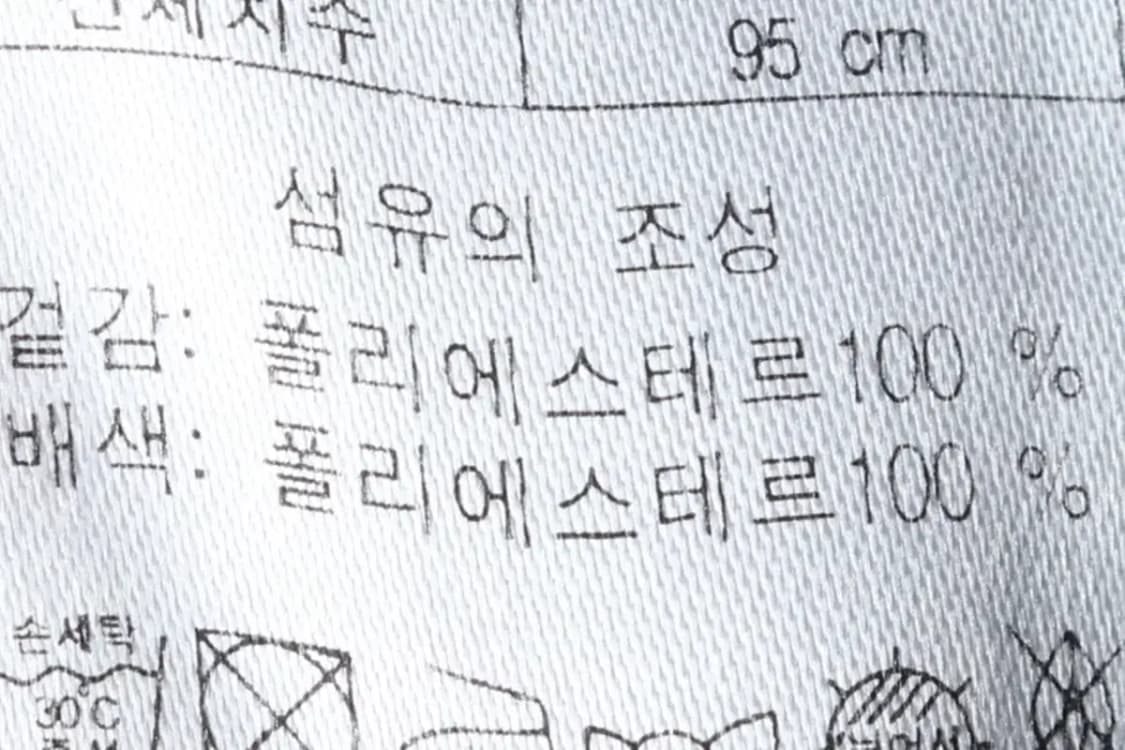 신체치수 95 cm
섬유의 조성
겉감: 폴리에스테르100 %
배색: 폴리에스테르100 %
손세탁
30℃
중성